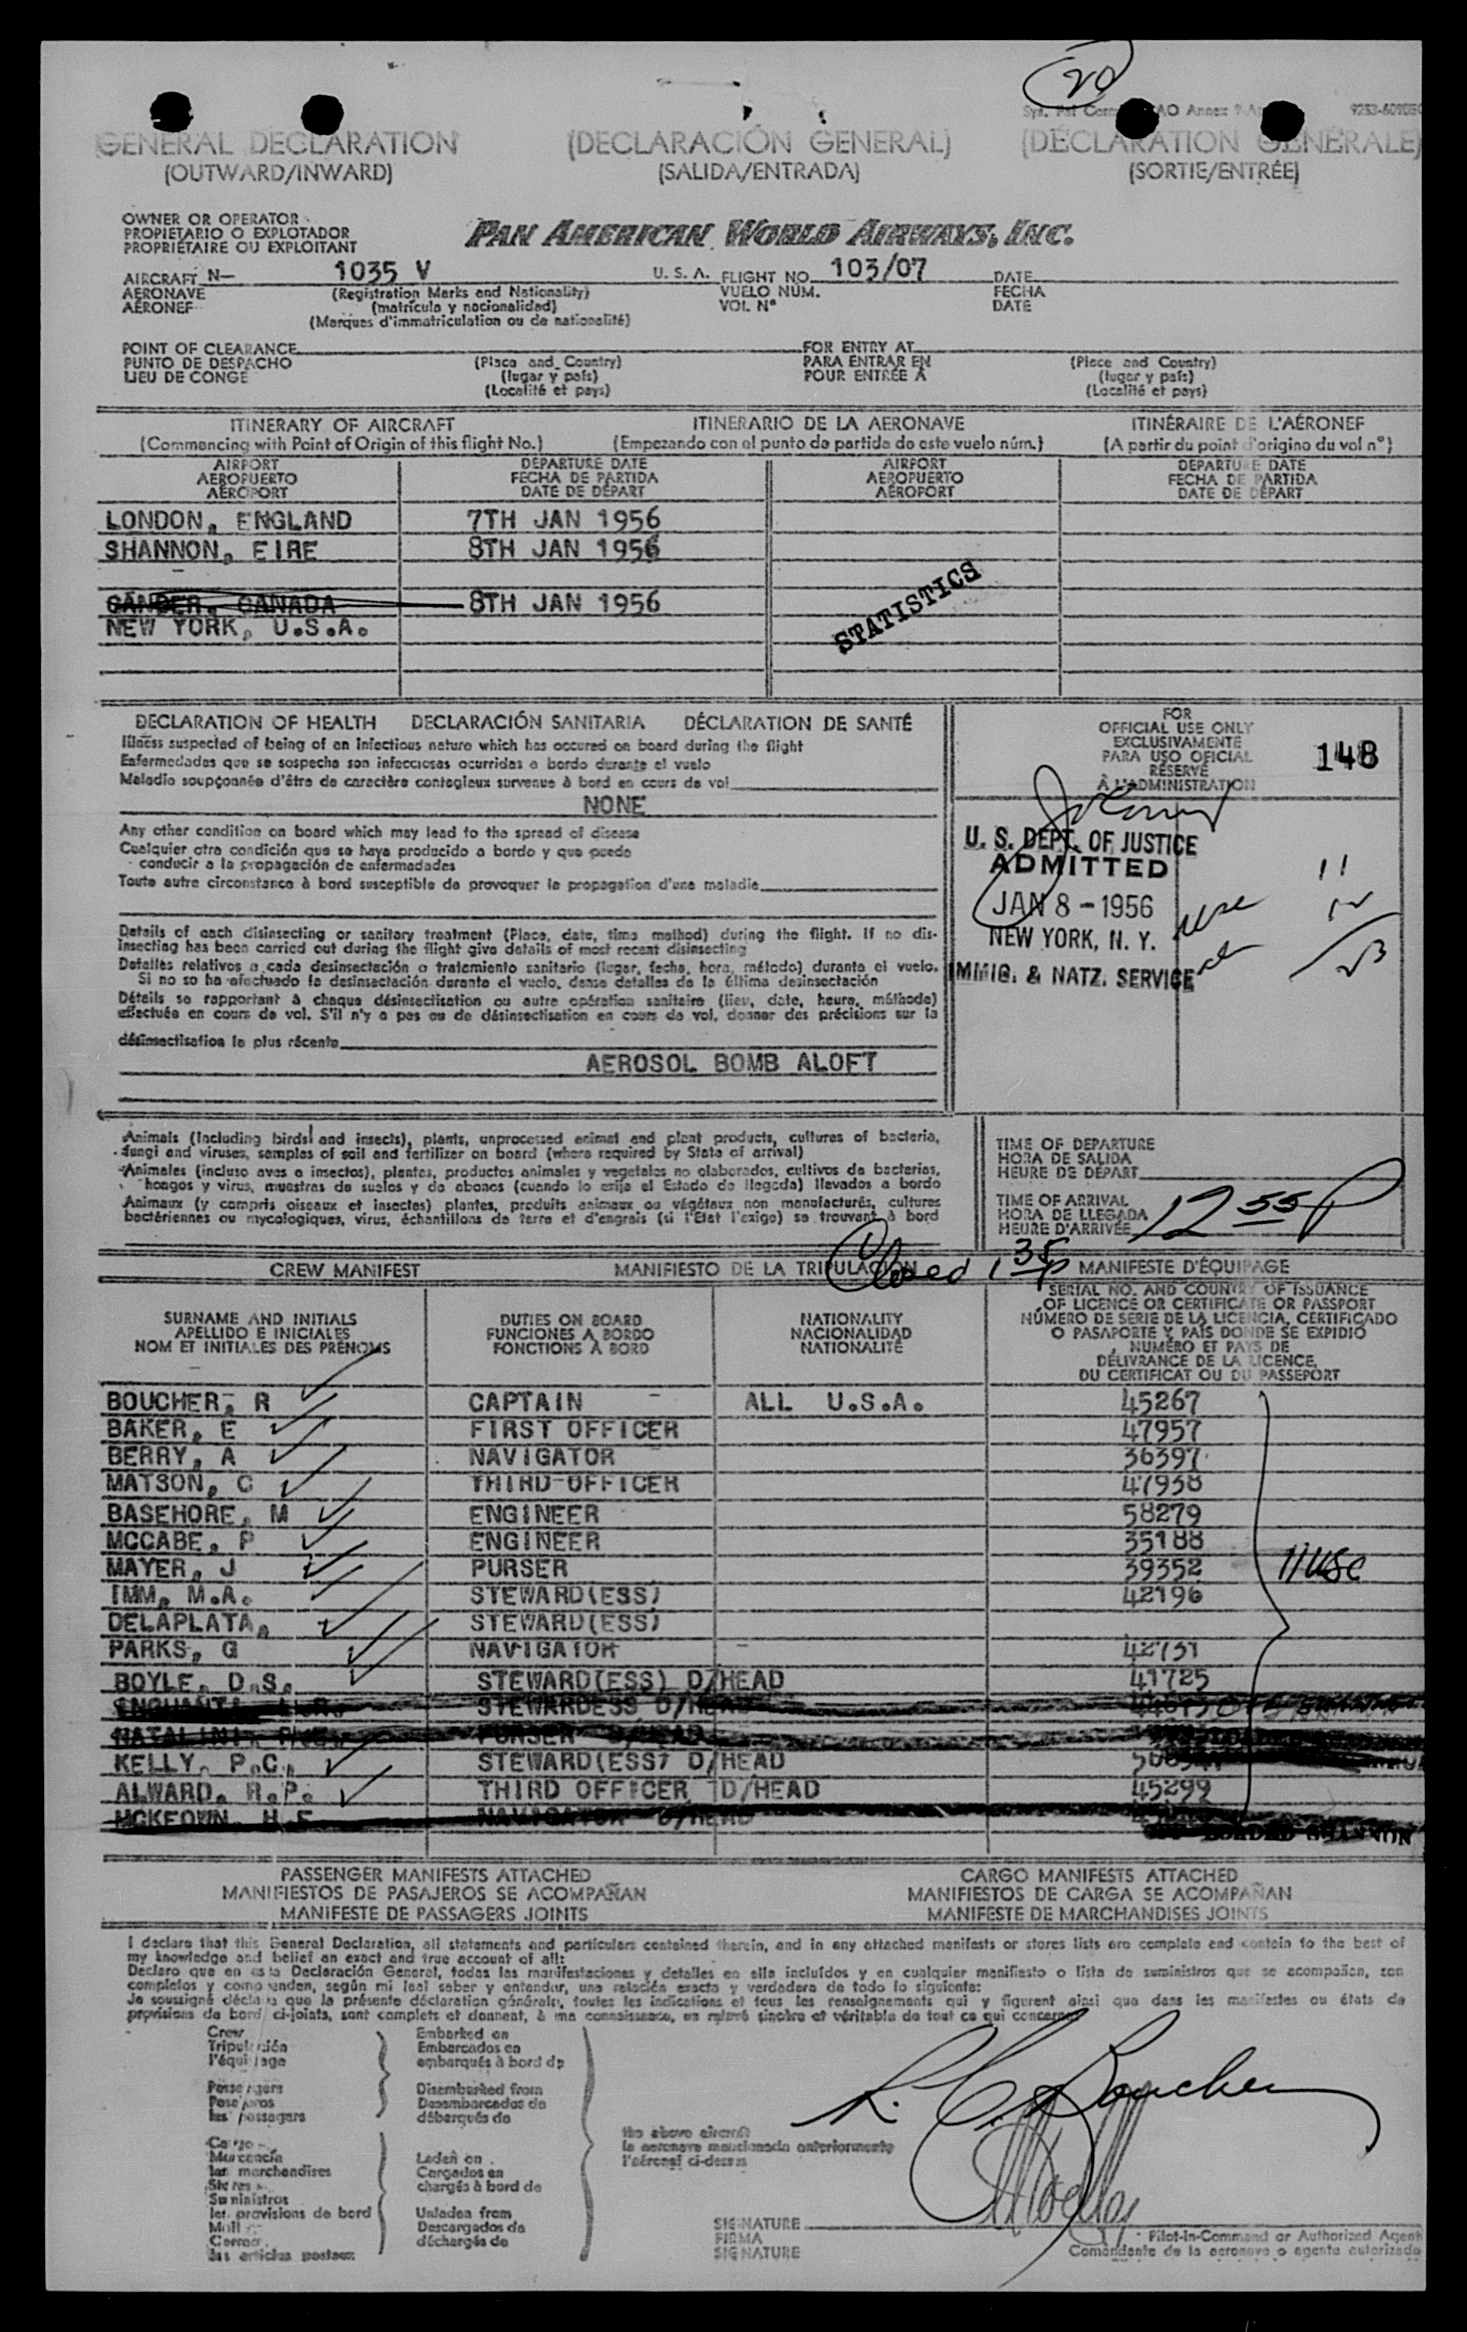 20
9253-
GENERAL DECLARATION (DECLARACIÓN GENERAL) (DECLARATION GENERALE)
(OUTWARD/INWARD) (SALIDA/ENTRADA) (SORTIE/ENTRÉE)
OWNER OR OPERATOR
PROPIETARIO O EXPLOTADOR
PROPRIÉTAIRE OU EXPLOITANT
PAN AMERICAN WORLD AIRWAYS, INC.
AIRCRAFT N— 1035 V U. S. A. FLIGHT NO. 103/07 DATE
AERONAVE (Registration Marks and Nationality) VUELO NÚM. FECHA
AÉRONEF (matrícula y nacionalidad) VOL N° DATE
(Marques d'immatriculation ou de nationalité)
POINT OF CLEARANCE FOR ENTRY AT
PUNTO DE DESPACHO (Place and Country) PARA ENTRAR EN (Place and Country)
LIEU DE CONGE (lugar y país) POUR ENTRÉE A (lugar y país)
(Localité et pays) (Localité et pays)
ITINERARY OF AIRCRAFT ITINERARIO DE LA AERONAVE ITINÉRAIRE DE L'AÉRONEF
(Commencing with Point of Origin of this flight No.) (Empezando con el punto de partida de este vuelo núm.) (A partir du point d'origine du vol n°)
AIRPORT DEPARTURE DATE AIRPORT DEPARTURE DATE
AEROPUERTO FECHA DE PARTIDA AEROPUERTO FECHA DE PARTIDA
AÉROPORT DATE DE DÉPART AÉROPORT DATE DE DÉPART
LONDON, ENGLAND 7TH JAN 1956
SHANNON, EIRE 8TH JAN 1956
GANDER, CANADA 8TH JAN 1956
NEW YORK, U.S.A.
STATISTICS
DECLARATION OF HEALTH DECLARACIÓN SANITARIA DÉCLARATION DE SANTÉ
Illness suspected of being of an infectious nature which has occured on board during the flight
Enfermedades que se sospecha son infecciosas ocurridas a bordo durante el vuelo
Maladie soupçonnée d'être de caractère contagieux survenue à bord en cours de vol
NONE
Any other condition on board which may lead to the spread of disease
Cualquier otra condición que se haya producido a bordo y que puede
conducir a la propagación de enfermedades
Toute autre circonstance à bord susceptible de provoquer la propagation d'une maladie
Details of each disinsecting or sanitary treatment (Place, date, time method) during the flight. If no dis-
insecting has been carried out during the flight give details of most recent disinsecting
Detalles relativos a cada desinsectación o tratamiento sanitario (lugar, fecha, hora, método) durante el vuelo.
Si no se ha efectuado la desinsectación durante el vuelo, dense detalles de la última desinsectación
Détails se rapportant à chaque désinsectisation ou autre opération sanitaire (lieu, date, heure, méthode)
effectuée en cours de vol. S'il n'y a pas eu de désinsectisation en cours de vol, donner des précisions sur la
désinsectisation la plus récente
AEROSOL BOMB ALOFT
FOR
OFFICIAL USE ONLY
EXCLUSIVAMENTE
PARA USO OFICIAL
RÉSERVÉ
À L'ADMINISTRATION
148
U. S. DEPT. OF JUSTICE
ADMITTED
JAN 8 - 1956
NEW YORK, N. Y.
IMMIG. & NATZ. SERVICE
usc 11
12
23
Animals (Including birds and insects), plants, unprocessed animal and plant products, cultures of bacteria,
fungi and viruses, samples of soil and fertilizer on board (where required by State of arrival)
Animales (incluso aves e insectos), plantas, productos animales y vegetales no elaborados, cultivos de bacterias,
hongos y virus, muestras de suelos y de abonos (cuando lo exija el Estado de llegada) llevados a bordo
Animaux (y compris oiseaux et insectes) plantes, produits animaux ou végétaux non manufacturés, cultures
bactériennes ou mycologiques, virus, échantillons de terre et d'engrais (si l'Etat l'exige) se trouvant à bord
TIME OF DEPARTURE
HORA DE SALIDA
HEURE DE DÉPART
TIME OF ARRIVAL
HORA DE LLEGADA
HEURE D'ARRIVÉE
12 55 P
Closed 1 35 P
CREW MANIFEST MANIFIESTO DE LA TRIPULACIÓN MANIFESTE D'ÉQUIPAGE
SURNAME AND INITIALS
APELLIDO E INICIALES
NOM ET INITIALES DES PRÉNOMS
DUTIES ON BOARD
FUNCIONES A BORDO
FONCTIONS À BORD
NATIONALITY
NACIONALIDAD
NATIONALITÉ
SERIAL NO. AND COUNTRY OF ISSUANCE
OF LICENCE OR CERTIFICATE OR PASSPORT
NÚMERO DE SERIE DE LA LICENCIA, CERTIFICADO
O PASAPORTE Y PAÍS DONDE SE EXPIDIÓ
NUMÉRO ET PAYS DE
DÉLIVRANCE DE LA LICENCE,
DU CERTIFICAT OU DU PASSEPORT
BOUCHER, R CAPTAIN ALL U.S.A. 45267
BAKER, E FIRST OFFICER 47957
BERRY, A NAVIGATOR 36397
MATSON, C THIRD OFFICER 47938
BASEHORE, M ENGINEER 58279
MCCABE, P ENGINEER 35188
MAYER, J PURSER 39352
11 usc
IMM, M.A. STEWARD(ESS) 42196
DELAPLATA, STEWARD(ESS)
PARKS, G NAVIGATOR 42731
BOYLE, D.S. STEWARD(ESS) D/HEAD 41725
STEWARDESS D/HEAD
PURSER D/HEAD
KELLY, P.C. STEWARD(ESS) D/HEAD
ALWARD, R.P. THIRD OFFICER D/HEAD 45299
MCKEOWN, H.F. NAVIGATOR D/HEAD
SHANNON
PASSENGER MANIFESTS ATTACHED CARGO MANIFESTS ATTACHED
MANIFIESTOS DE PASAJEROS SE ACOMPAÑAN MANIFIESTOS DE CARGA SE ACOMPAÑAN
MANIFESTE DE PASSAGERS JOINTS MANIFESTE DE MARCHANDISES JOINTS
I declare that this General Declaration, all statements and particulars contained therein, and in any attached manifests or stores lists are complete and contain to the best of
my knowledge and belief an exact and true account of all:
Declaro que en esta Declaración General, todas las manifestaciones y detalles en ella incluídos y en cualquier manifiesto o lista de suministros que se acompañan, son
completos y comprenden, según mi leal saber y entender, una relación exacta y verdadera de todo lo siguiente:
Je soussigné déclare que la présente déclaration générale, toutes les indications et tous les renseignements qui y figurent ainsi que dans les manifestes ou états de
provisions de bord ci-joints, sont complets et donnent, à ma connaissance, un relevé sincère et véritable de tout ce qui concerne:
Crew Embarked on
Tripulación Embarcados en
l'équipage embarqués à bord de
Passengers Disembarked from
Pasajeros Desembarcados de
les passagers débarqués de
the above aircraft
la aeronave mencionada anteriormente
l'aéronef ci-dessus
Cargo
Mercancía Laden on
les marchandises Cargados en
Stores chargés à bord de
Suministros
les provisions de bord Unladen from
Mail Descargados de
Correo déchargés de
les articles postaux
R. C. Boucher
SIGNATURE
FIRMA
SIGNATURE
Pilot-in-Command or Authorized Agent
Comandante de la aeronave o agente autorizado